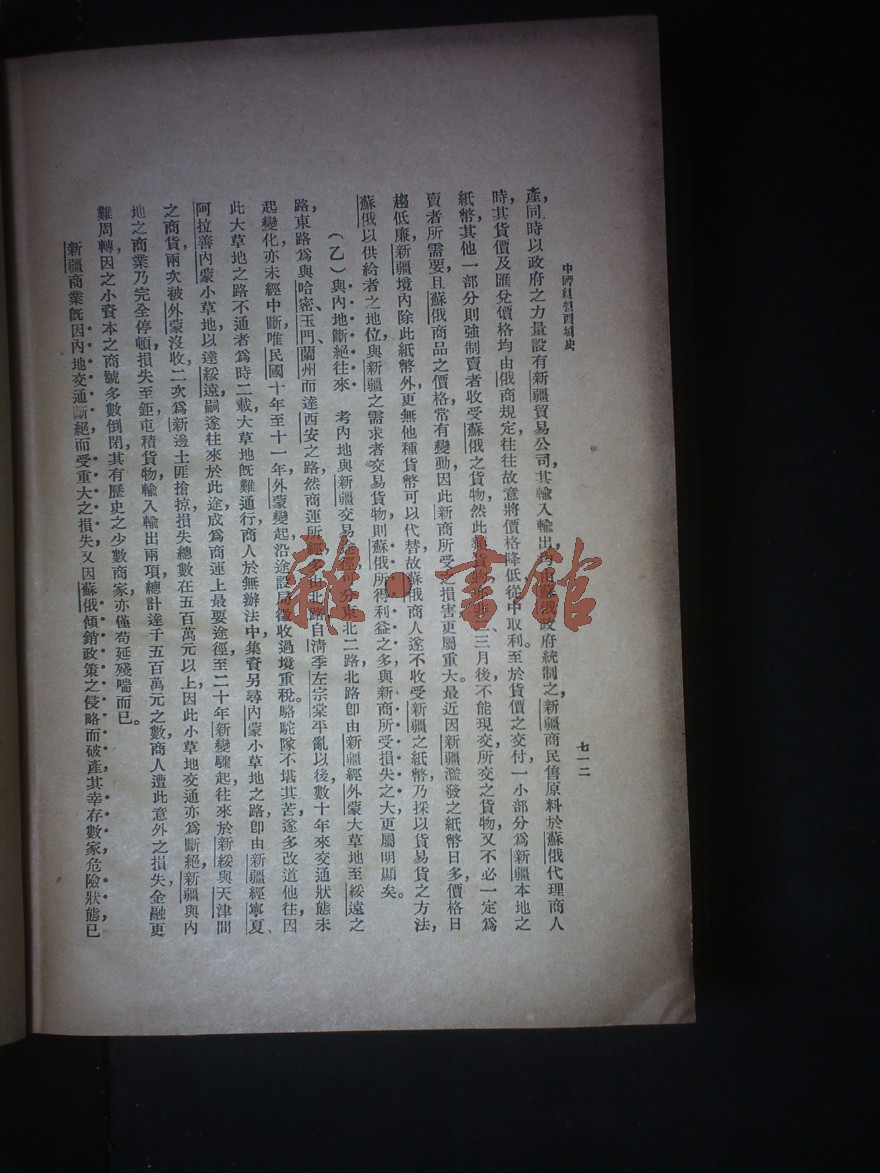 中國經營西域史
七一二
產，同時以政府之力量設有新疆貿易公司，其輸入輸出均由蘇俄政府統制之，新疆商民售原料於蘇俄代理商人
時，其貨價及匯兌價格均由俄商規定，往往故意將價格降低從中取利。至於貨價之交付一小部分爲新疆本地之
紙幣，其他一部分則強制賣者收受蘇俄之貨物，然此種貨物亦非二、三月後，不能現交，所交之貨物，又不必一定爲
賣者所需要，且蘇俄商品之價格，常有變動，因此新商所受之損害更屬重大。最近因新疆濫發之紙幣日多，價格日
趨低廉，新疆境內除此紙幣外，更無他種貨幣可以代替，故蘇俄商人遂不收受新疆之紙幣，乃採以貨易貨之方法，
蘇俄以供給者之地位，與新疆之需求者交易貨物，則蘇俄所得利益之多，與新商所受損失之大，更屬明顯矣。
（乙）與內地斷絕往來　考內地與新疆交易途徑，可分東北二路，北路卽由新疆經外蒙大草地至綏遠之
路，東路爲與哈密、玉門、蘭州而達西安之路，然商運所經多由北路，自清季左宗棠平亂以後，數十年來交通狀態未
起變化，亦未經中斷，唯民國十年至十一年，外蒙變起，沿途設局徵收過境重稅。駱駝隊不堪其苦，遂多改道他往，因
此大草地之路不通者爲時二載，大草地旣難通行，商人於無辦法中，集資另尋內蒙小草地之路，卽由新疆經寧夏、
阿拉善、內蒙小草地以達綏遠，嗣遂往來於此途，成爲商運上最要途徑，至二十年新變驟起，往來於新綏與天津間
之商貨，兩次被外蒙沒收，二次爲新邊土匪搶掠，損失總數在五百萬元以上，因此小草地交通亦爲斷絕，新疆與內
地之商業，乃完全停頓，損失至鉅，屯積貨物輸入輸出兩項總計達千五百萬元之數，商人遭此意外之損失，金融更
難周轉，因之小資本之商號多數倒閉，其有歷史之少數商家，亦僅苟延殘喘而已。
新疆商業旣因內地交通斷絕，而受重大之損失，又因蘇俄傾銷政策之侵略而破產，其幸存數家，危險狀態，已
雜·書館